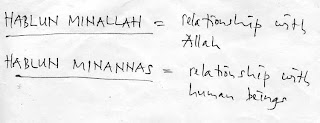 HABLUN MINALLAH = relationship with
Allah
HABLUN MINANNAS = relationship with
human beings